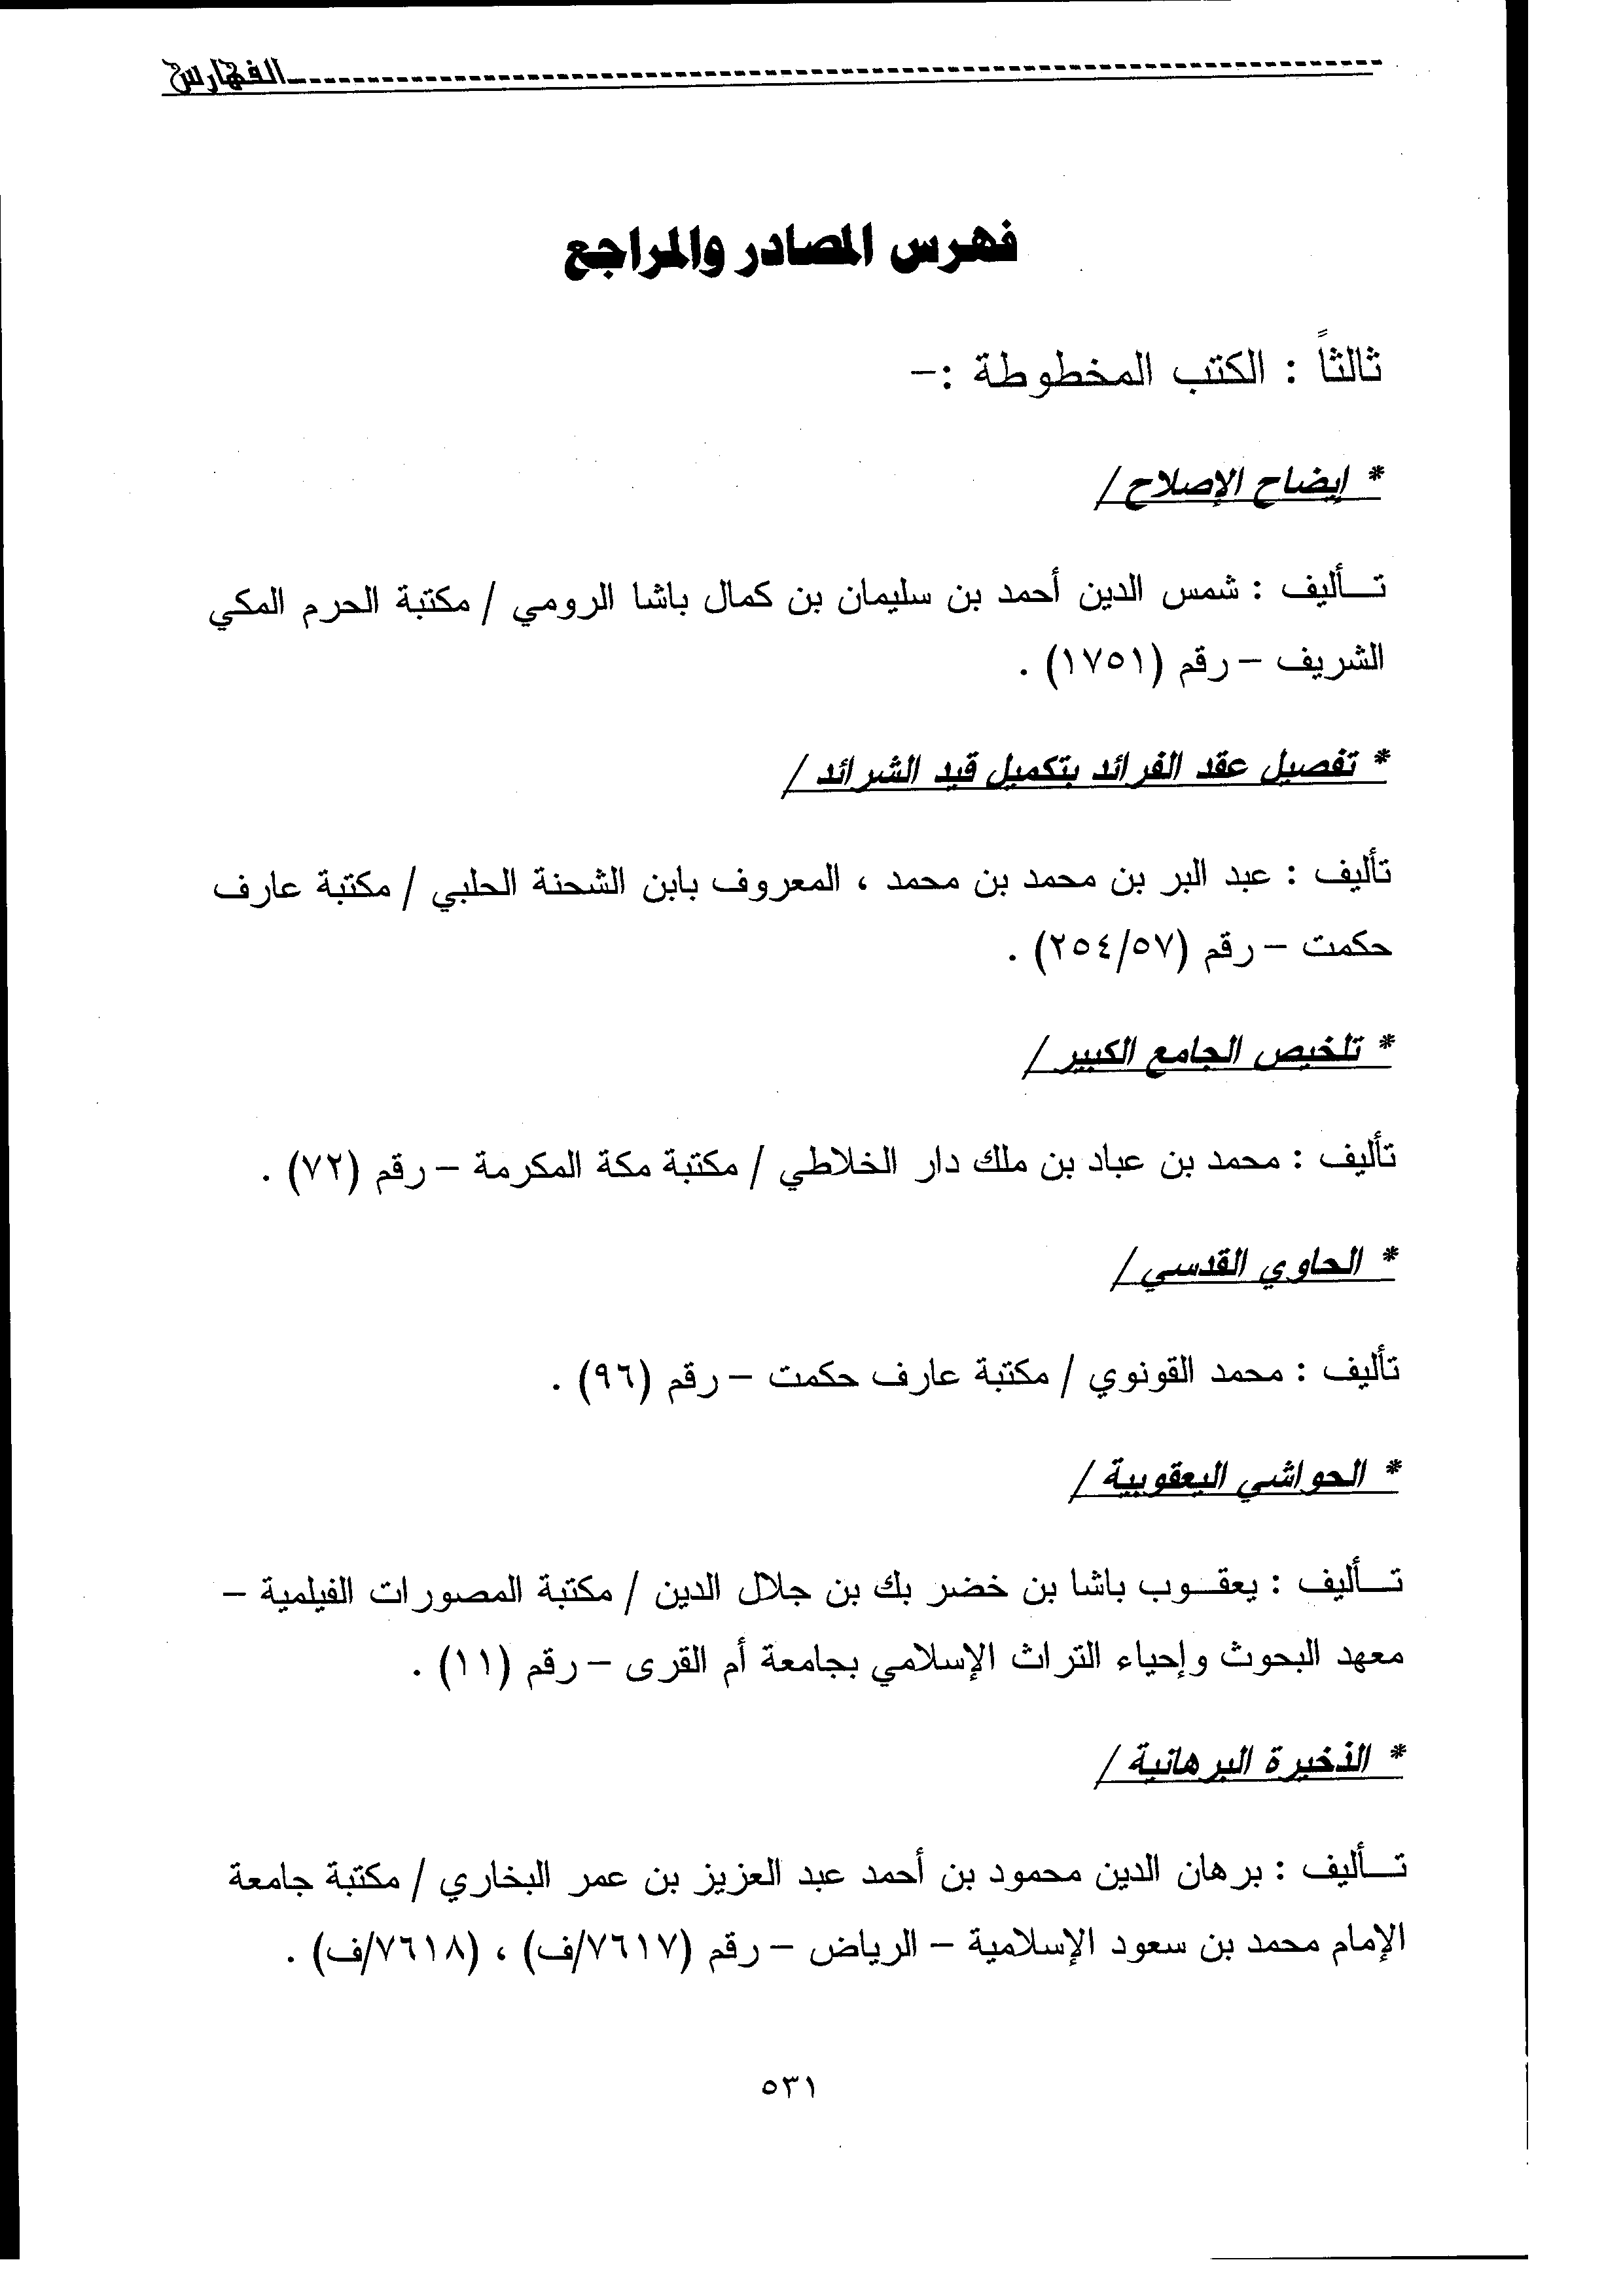 الفهارس
فهرس المصادر والمراجع
ثالثاً : الكتب المخطوطة :-
* إيضاح الإصلاح /
تـــأليف : شمس الدين أحمد بن سليمان بن كمال باشا الرومي / مكتبة الحرم المكي
الشريف – رقم (١٧٥١) .
* تفصيل عقد الفرائد بتكميل قيد الشرائد /
تأليف : عبد البر بن محمد بن محمد ، المعروف بابن الشحنة الحلبي / مكتبة عارف
حكمت – رقم (٢٥٤/٥٧) .
* تلخيص الجامع الكبير /
تأليف : محمد بن عباد بن ملك دار الخلاطي / مكتبة مكة المكرمة – رقم (٧٢) .
* الحاوي القدسي /
تأليف : محمد القونوي / مكتبة عارف حكمت – رقم (٩٦) .
* الحواشي اليعقوبية /
تـــأليف : يعقـــوب باشا بن خضر بك بن جلال الدين / مكتبة المصورات الفيلمية –
معهد البحوث وإحياء التراث الإسلامي بجامعة أم القرى – رقم (١١) .
* الذخيرة البرهانية /
تـــأليف : برهان الدين محمود بن أحمد عبد العزيز بن عمر البخاري / مكتبة جامعة
الإمام محمد بن سعود الإسلامية – الرياض – رقم (٧٦١٧/ف) ، (٧٦١٨/ف) .
٥٣١